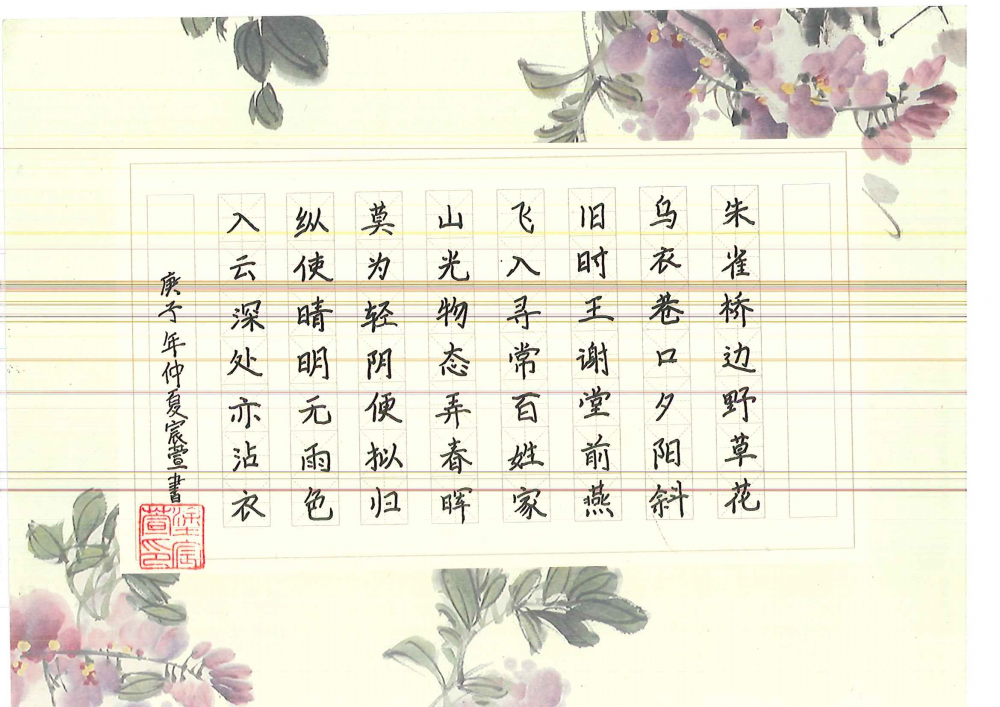 朱雀桥边野草花
乌衣巷口夕阳斜
旧时王谢堂前燕
飞入寻常百姓家
山光物态弄春晖
莫为轻阴便拟归
纵使晴明无雨色
入云深处亦沾衣
庚子年仲夏宸萱書
涂宸萱印